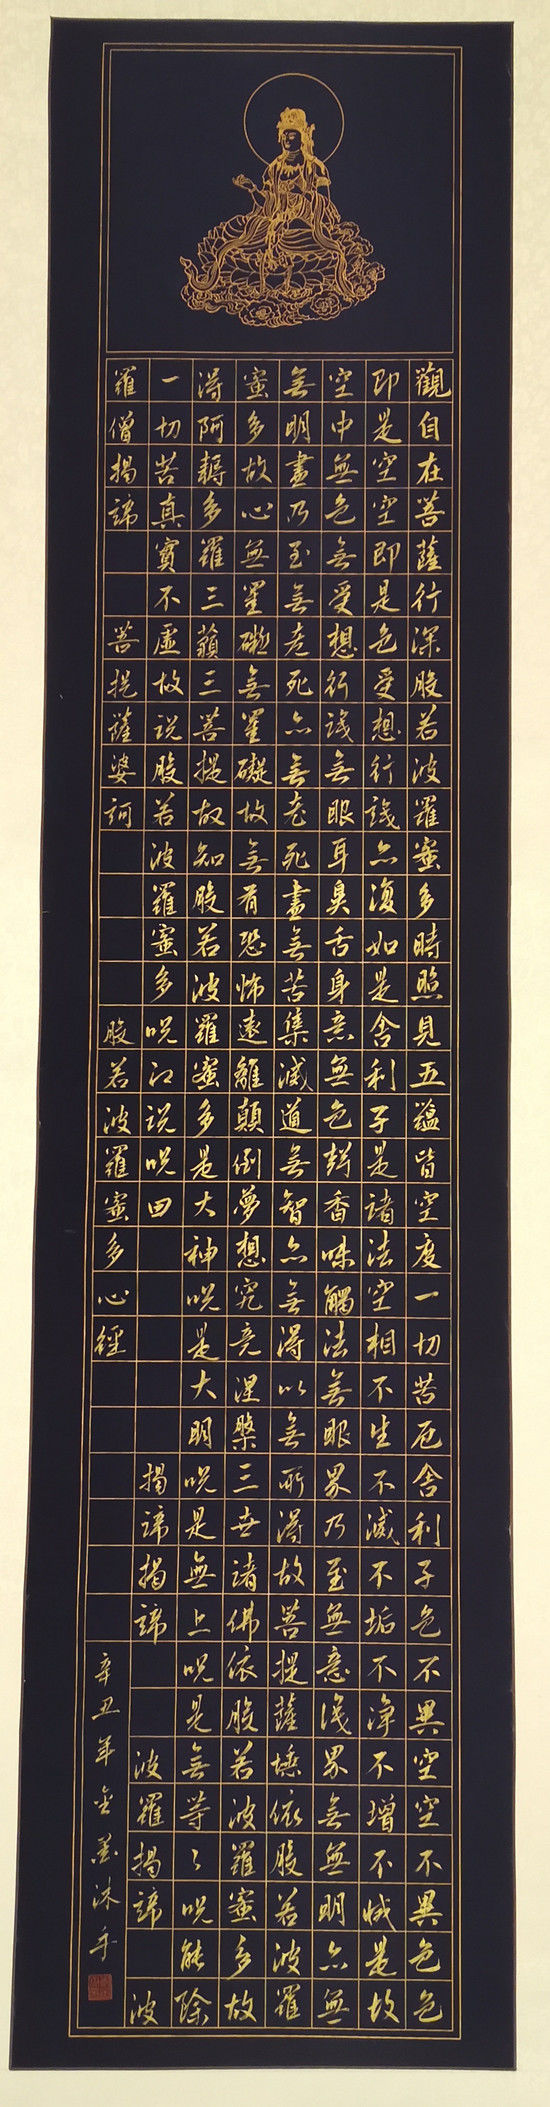 觀自在菩薩行深般若波羅蜜多時照見五蘊皆空度一切苦厄舍利子色不異空空不異色色
即是空空即是色受想行識亦復如是舍利子是諸法空相不生不滅不垢不淨不增不減是故
空中無色無受想行識無眼耳鼻舌身意無色聲香味觸法無眼界乃至無意識界無無明亦無
無明盡乃至無老死亦無老死盡無苦集滅道無智亦無得以無所得故菩提薩埵依般若波羅
蜜多故心無罣礙無罣礙故無有恐怖遠離顛倒夢想究竟涅槃三世諸佛依般若波羅蜜多故
得阿耨多羅三藐三菩提故知般若波羅蜜多是大神咒是大明咒是無上咒是無等々咒能除
一切苦真實不虛故說般若波羅蜜多咒即說咒曰 揭諦揭諦 波羅揭諦 波
羅僧揭諦 菩提薩婆訶 般若波羅蜜多心經
辛丑年金墨沐手